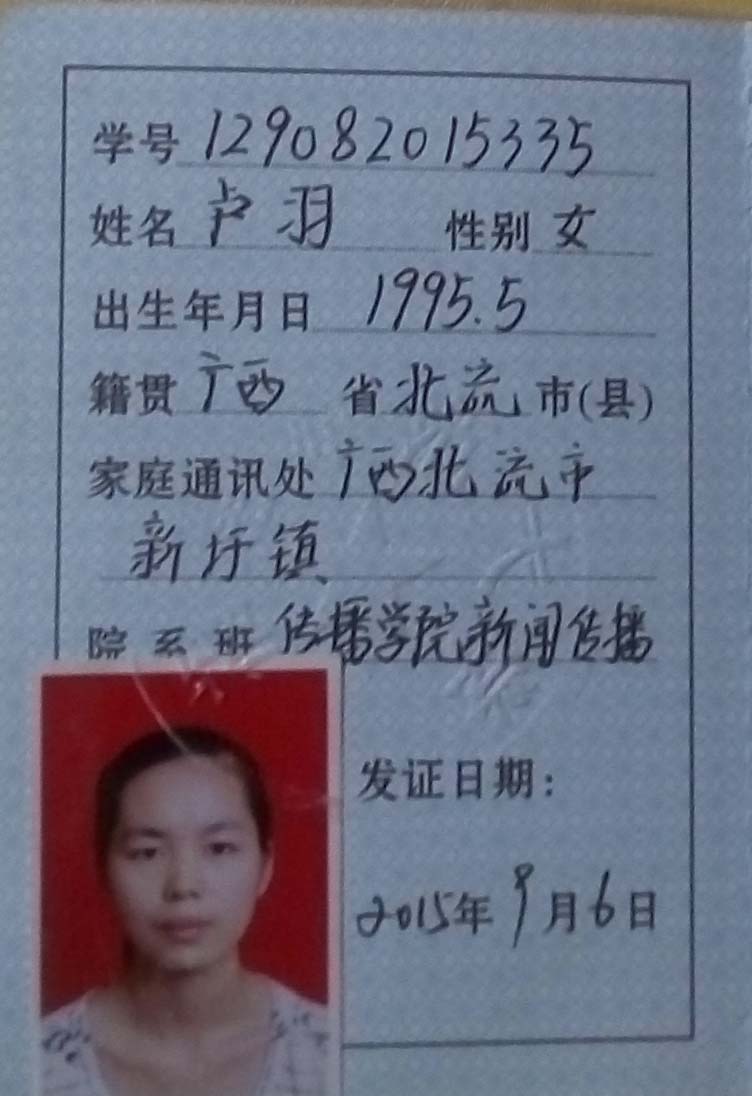 学号 129082015335
姓名 卢羽 性别 女
出生年月日 1995.5
籍贯 广西 省 北流 市(县)
家庭通讯处 广西北流市
新圩镇
院系班 传播学院新闻传播
发证日期:
2015年9月6日